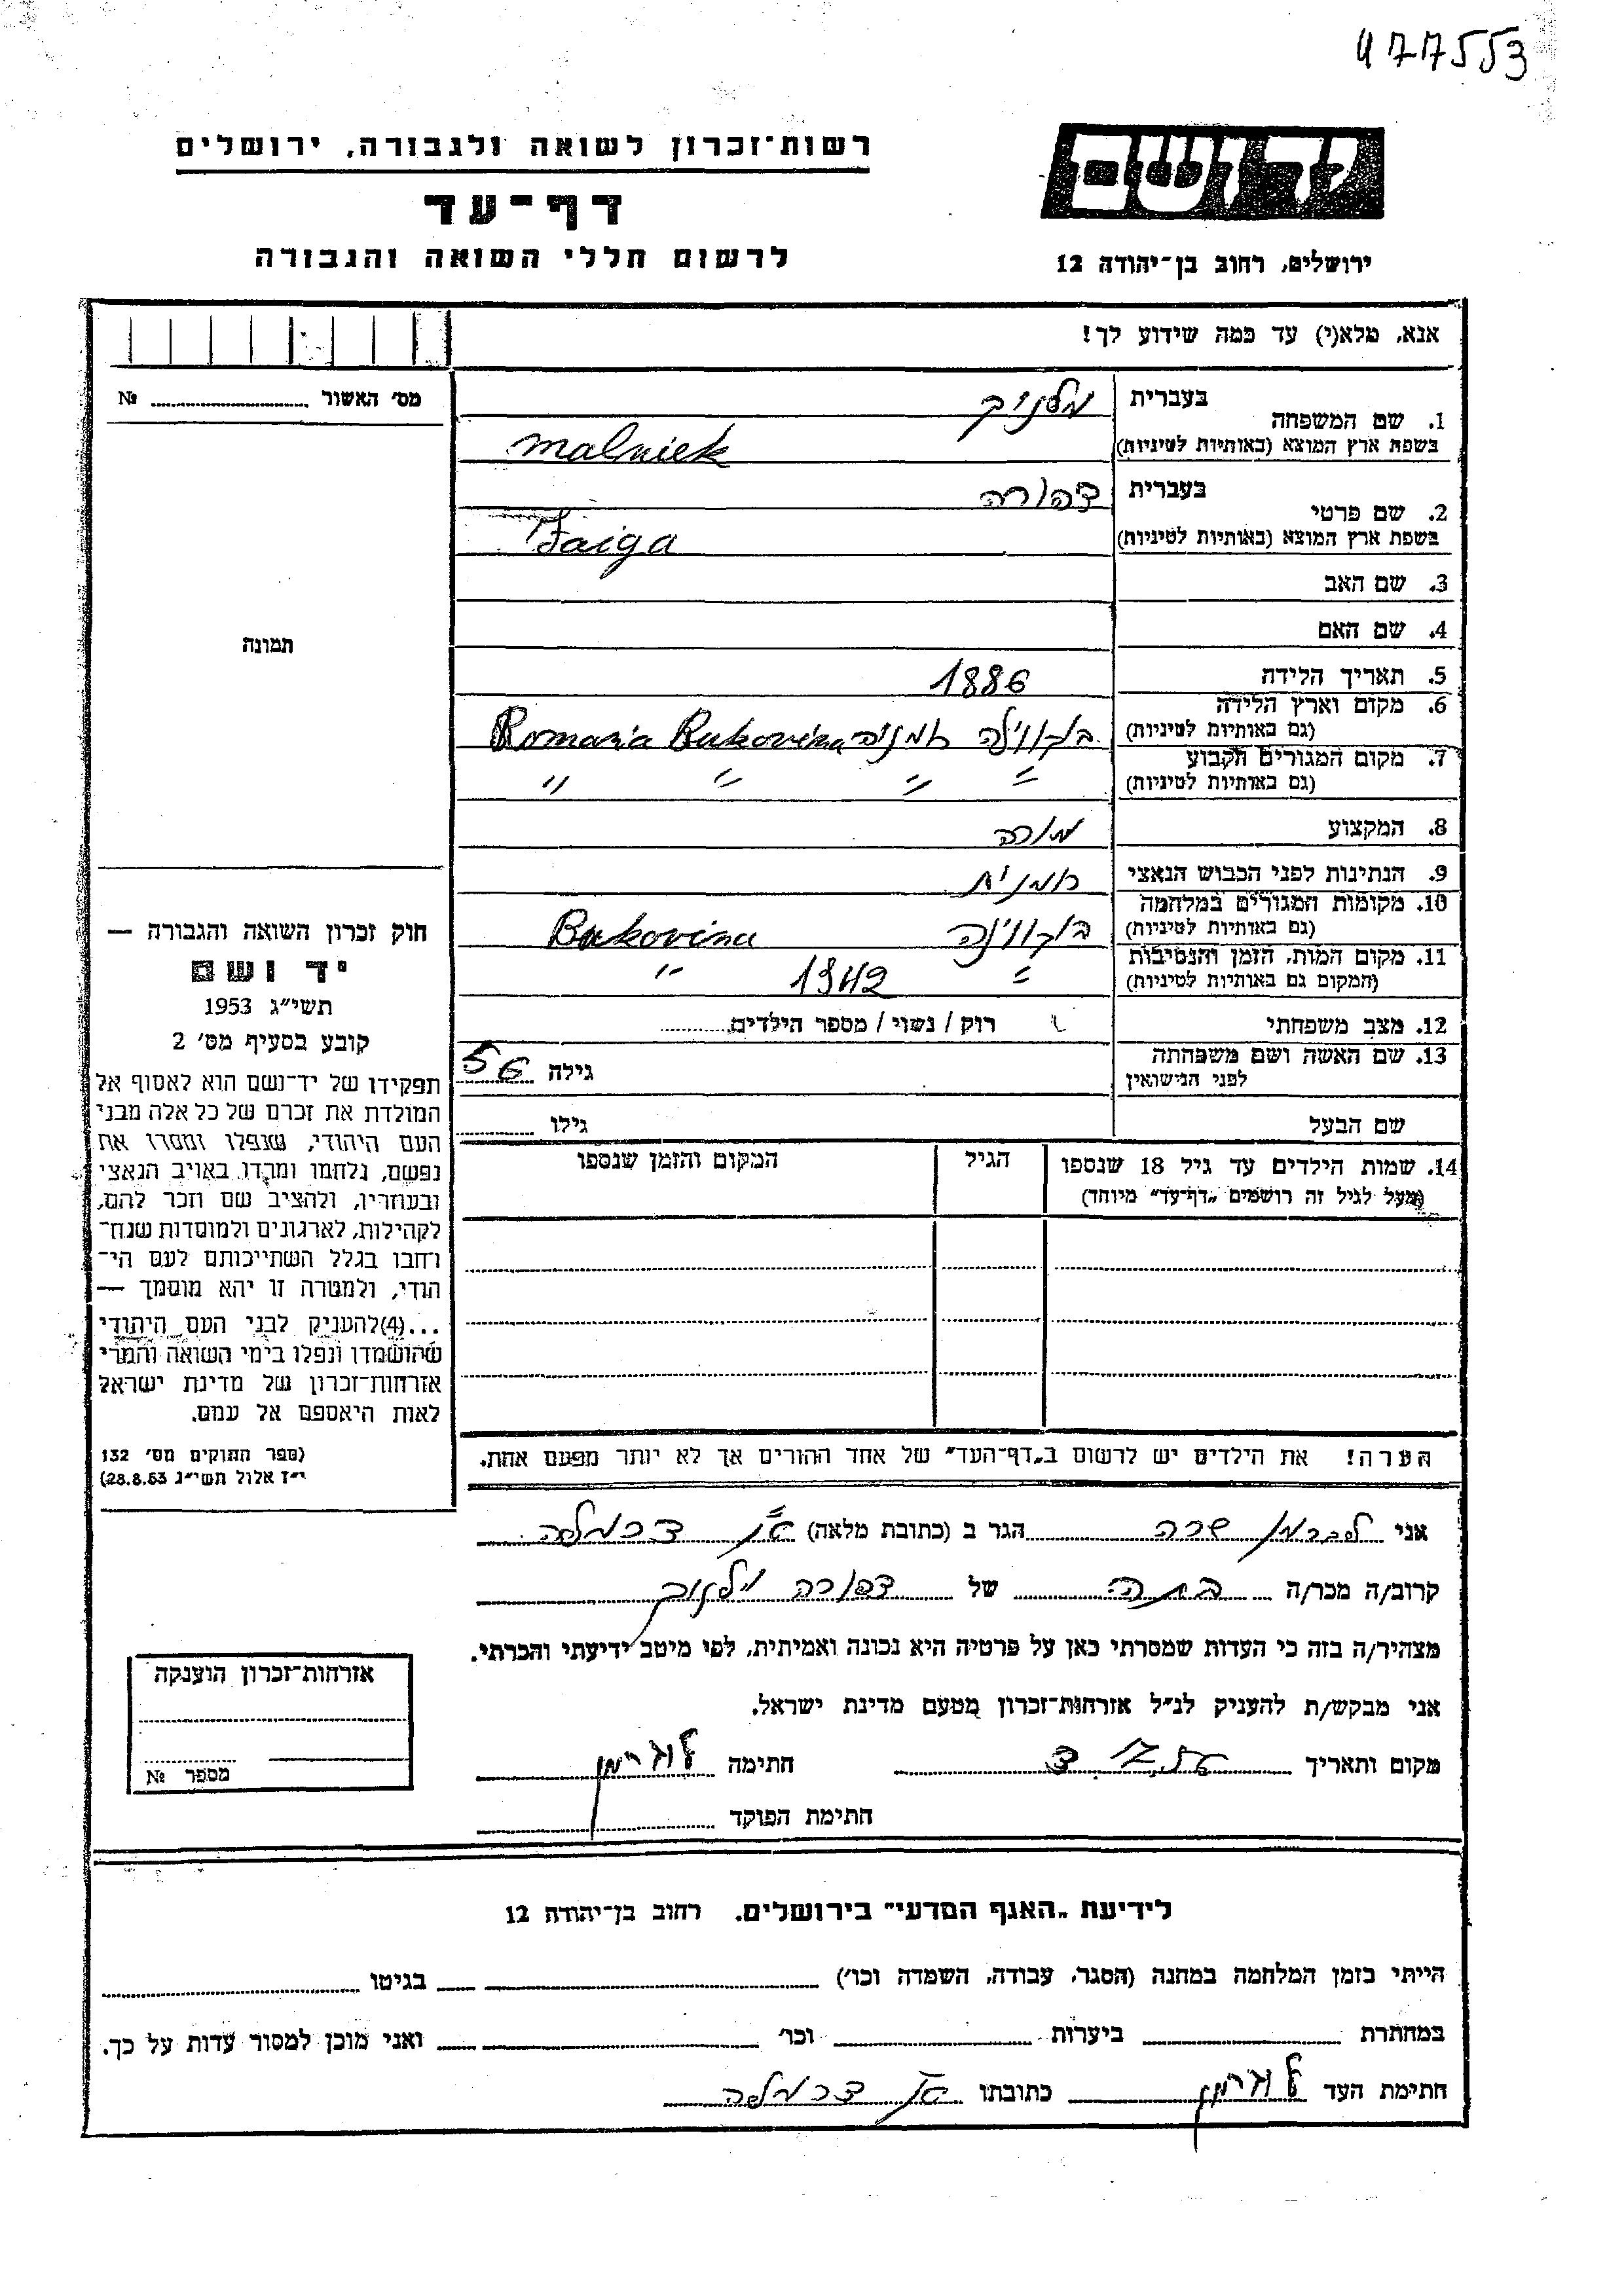 477553
רשות־זכרון לשואה ולגבורה, ירושלים
דף־עד
לרשום חללי השואה והגבורה
יד ושם
ירושלים, רחוב בן־יהודה 12
אנא, מלא(י) עד כמה שידוע לך!
מס׳ האשור № 
תמונה
חוק זכרון השואה והגבורה —
יד ושם
תשי״ג 1953
קובע בסעיף מס׳ 2
תפקידו של יד־ושם הוא לאסוף אל
המולדת את זכרם של כל אלה מבני
העם היהודי, שנפלו ומסרו את
נפשם, נלחמו ומרדו באויב הנאצי
ובעוזריו, ולהציב שם וזכר להם,
לקהילות, לארגונים ולמוסדות שנח־
רחבו בגלל השתייכותם לעם הי־
הודי, ולמטרה זו יהא מוסמך —
...(4)להעניק לבני העם היהודי
שהושמדו ונפלו בימי השואה והמרי
אזרחות־זכרון של מדינת ישראל
לאות היאספם אל עמם.
(ספר החוקים מס׳ 132
י״ז אלול תשי״ג 28.8.53)
1. שם המשפחה בעברית מלניק
בשפת ארץ המוצא (באותיות לטיניות) malniek
2. שם פרטי בעברית צפורה
בשפת ארץ המוצא (באותיות לטיניות) Faiga
3. שם האב
4. שם האם
5. תאריך הלידה 1886
6. מקום וארץ הלידה (גם באותיות לטיניות) בוקווינה רומניה Romania Bukovina
7. מקום המגורים הקבוע (גם באותיות לטיניות) " " " "
8. המקצוע מורה
9. הנתינות לפני הכבוש הנאצי רומנית
10. מקומות המגורים במלחמה (גם באותיות לטיניות) בוקווינה Bukovina
11. מקום המות, הזמן והנסיבות (המקום גם באותיות לטיניות) " 1942 "
12. מצב משפחתי רוק / נשוי / מספר הילדים
13. שם האשה ושם משפחתה לפני הנישואין גילה 56
שם הבעל גילו
14. שמות הילדים עד גיל 18 שנספו הגיל המקום והזמן שנספו
(מעל לגיל זה רושמים „דף־עד״ מיוחד)
הערה! את הילדים יש לרשום ב„דף־העד״ של אחד ההורים אך לא יותר מפעם אחת.
אני ליברמן שרה הגר ב (כתובת מלאה)
קרוב/ה מכר/ה בתה של צפורה מלניק
מצהיר/ה בזה כי העדות שמסרתי כאן על פרטיה היא נכונה ואמיתית, לפי מיטב ידיעתי והכרתי.
אני מבקש/ת להעניק לנ״ל אזרחות־זכרון מטעם מדינת ישראל.
מקום ותאריך חתימה
חתימת הפוקד
אזרחות־זכרון הוענקה
מספר №
לידיעת „האגף המדעי״ בירושלים. רחוב בן־יהודה 12
הייתי בזמן המלחמה במחנה (הסגר, עבודה, השמדה וכו׳) בגיטו
במחתרת ביערות וכו׳ ואני מוכן למסור עדות על כך.
חתימת העד כתובתו